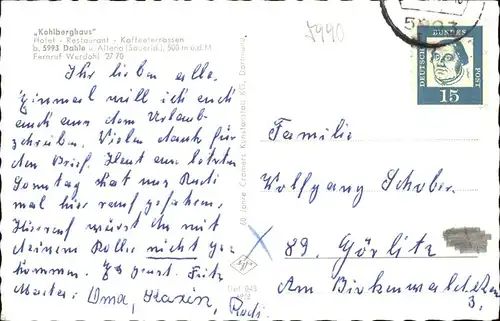 „Kohlberghaus"
Hotel - Restaurant - Kaffeeterrassen
b. 5993 Dahle ü. Altena (Sauerld.), 500 m ü.d.M
Fernruf Werdohl 27 70
Ihr lieben alle.
Einmal will ich euch
auch aus dem Urlaub
schreiben. Vielen dank für
den Brief. Heut am letzten
Sonntag hat uns Rudi
mal hier rauf gefahren.
Hierrauf würdst du mit
deinem Roller nicht ge-
kommen. Es grüst. Fritz
Marta: Oma, Karin,
Rudi.
60 Jahre Cramers Kunstanstalt KG, Dortmund
7990
DEUTSCHE
BUNDES
POST
15
Familie
Wolfgang Schober
89. Görlitz
Am Birkenwäldchen
3,